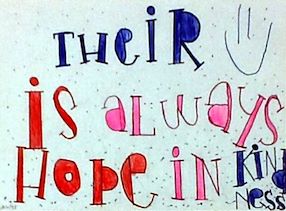 THEIR
iS ALWAYS
HOPE iN KiND
NESS